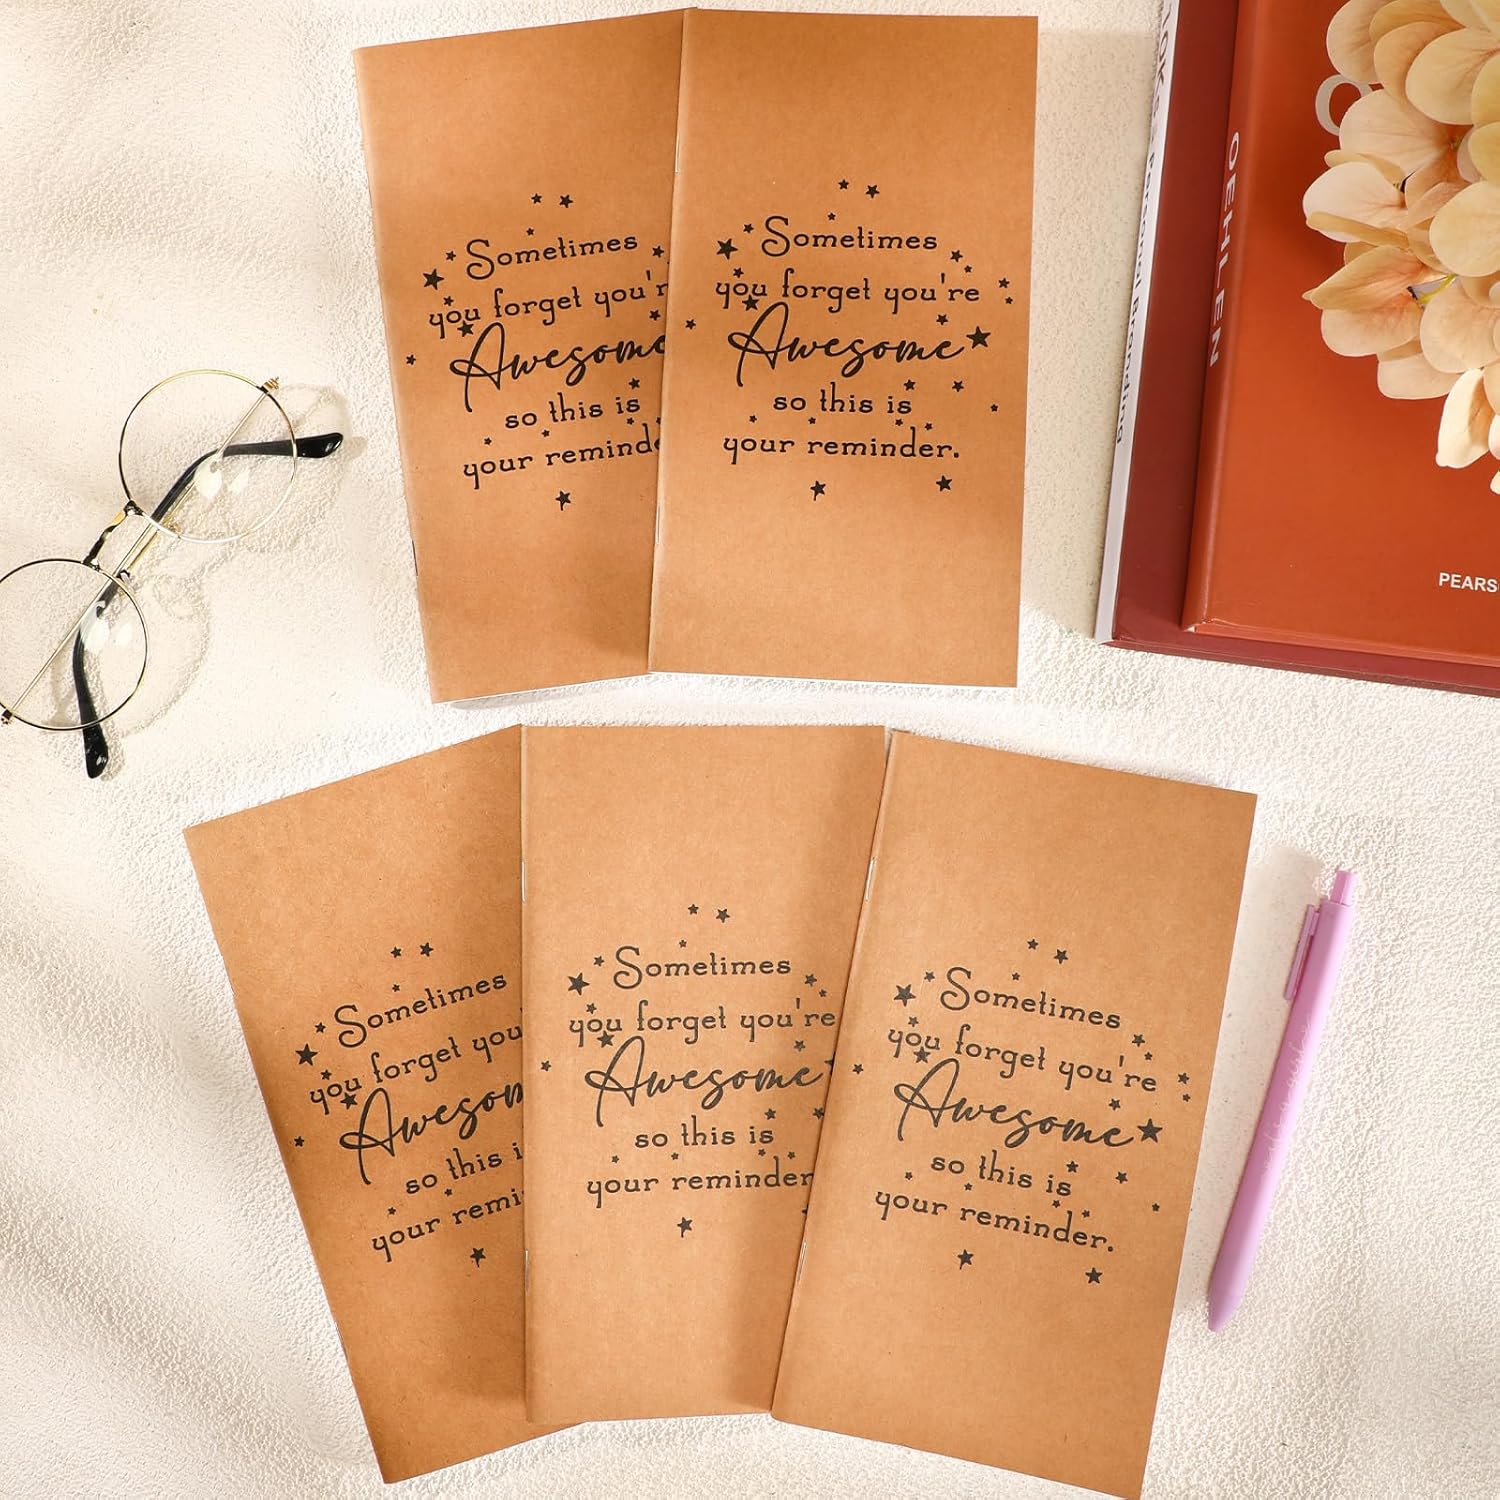 Sometimes
you forget you'r
Awesome
so this is
your remind
Sometimes
you forget you're
Awesome
so this is
your reminder.
Personal Branding
OEHLEN
PEARS
Sometimes
you forget you'
Awesom
so this i
your remi
Sometimes
you forget you're
Awesome
so this is
your reminder
Sometimes
you forget you're
Awesome
so this is
your reminder.